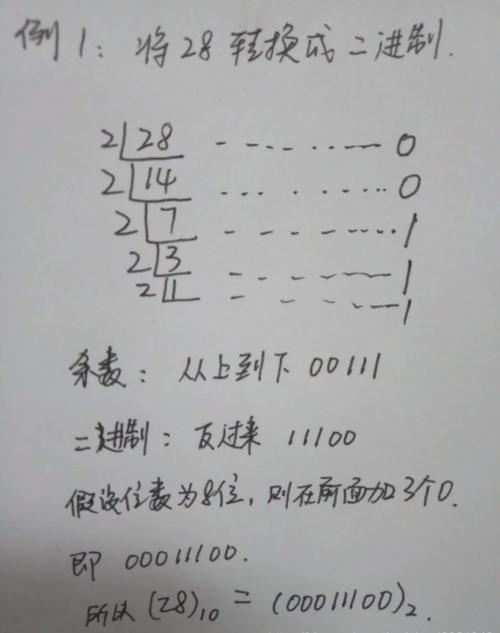 例1：将28转换成二进制.
2 28 - - - - . . - - 0
2 14 . . . . . . . . . 0
2 7 - - - - - . . . 1
2 3 - - - - - - - 1
2 1 - - - - - - 1
余数：从上到下 00111
二进制：反过来 11100
假设位数为8位，则在前面加3个0.
即 00011100.
所以 (28)10 = (00011100)2.